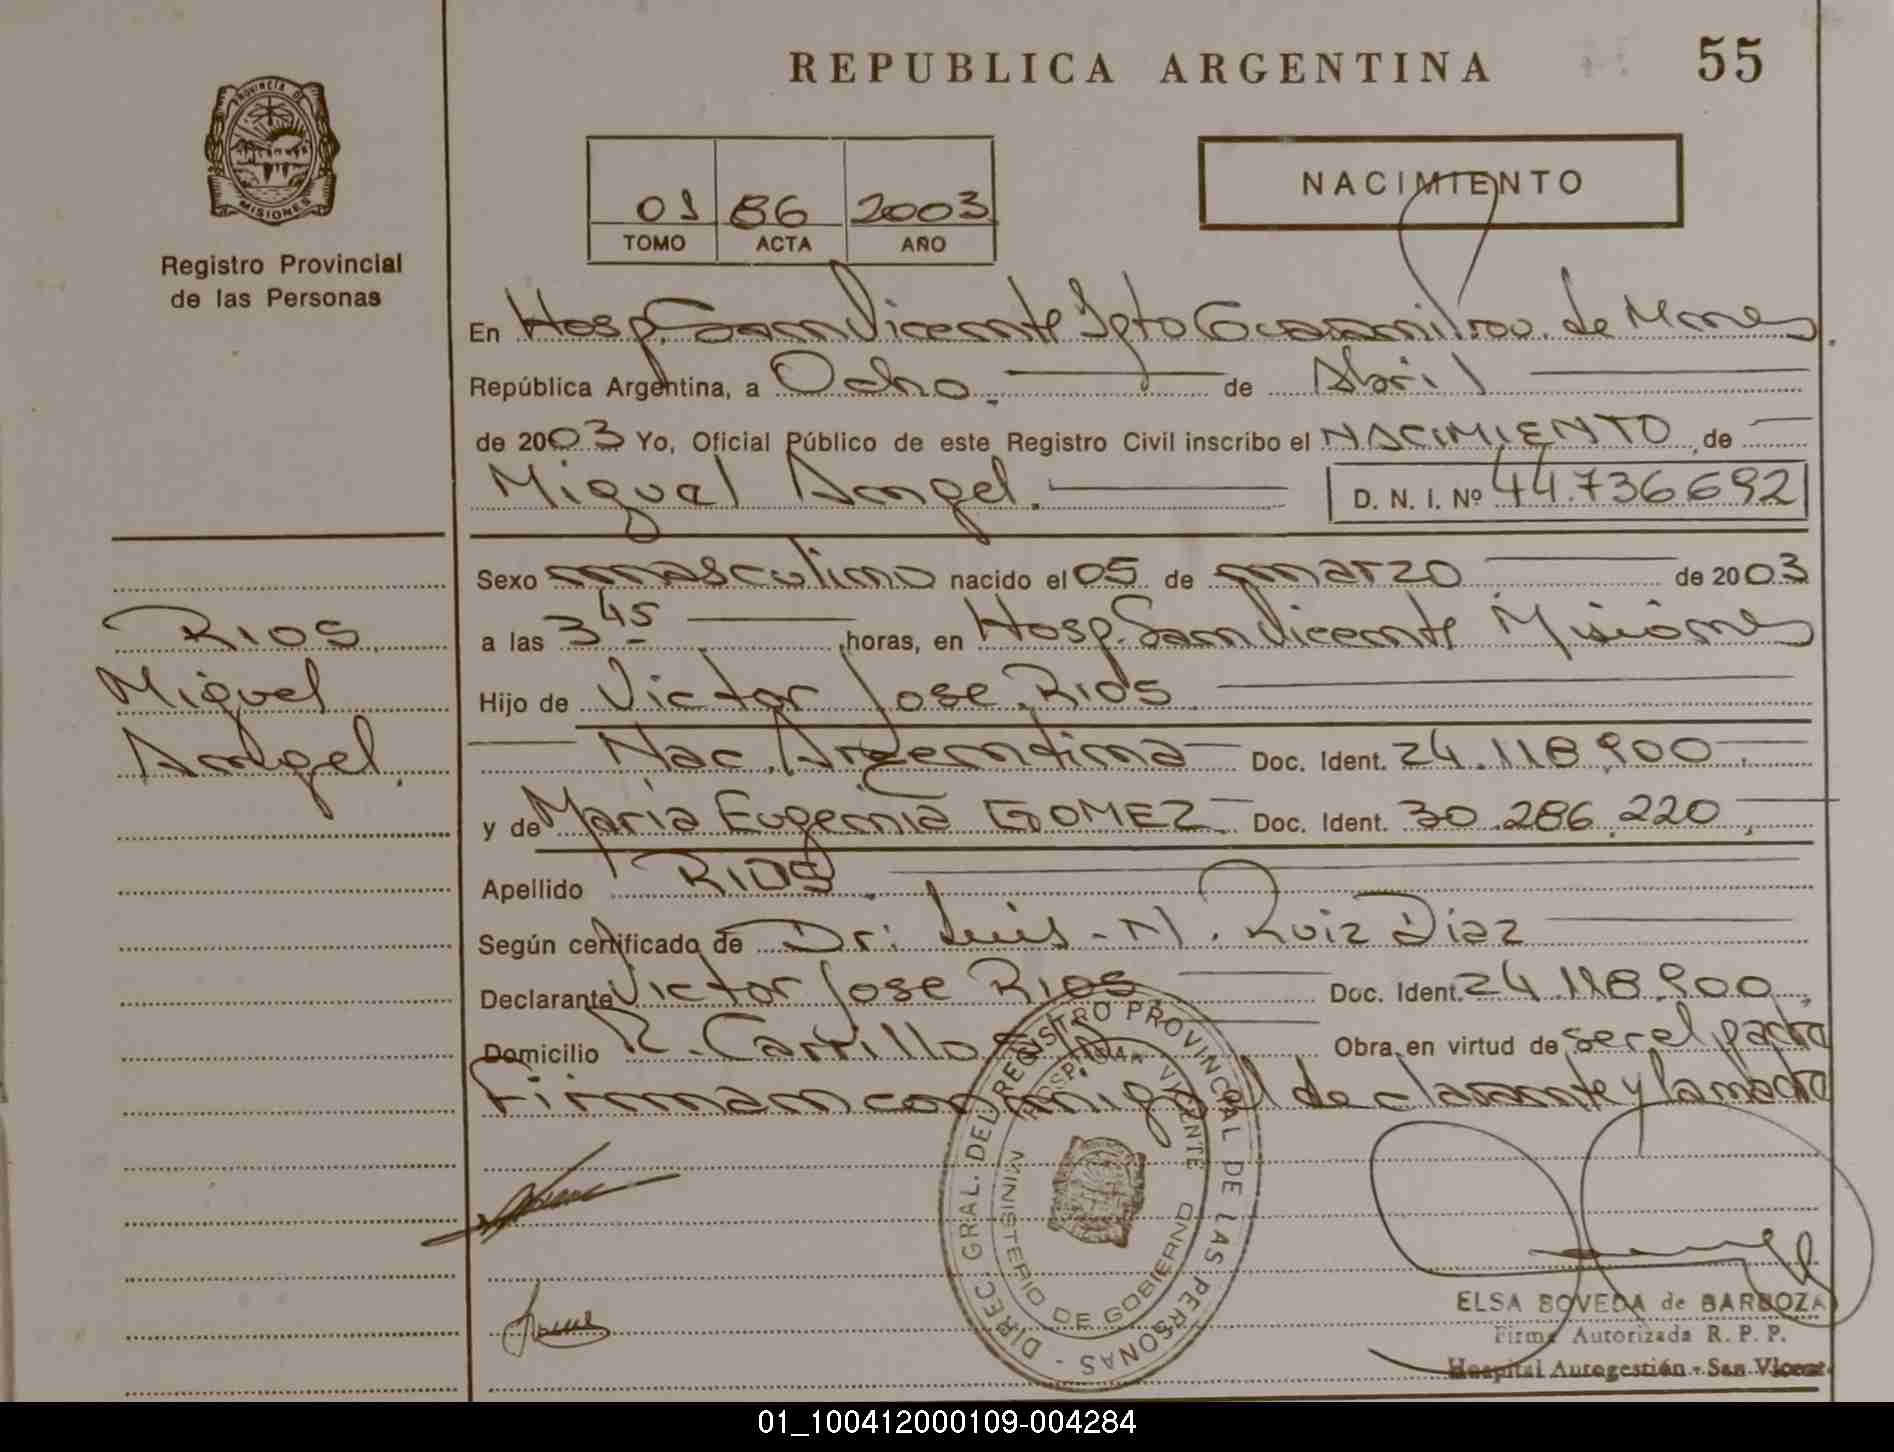 REPUBLICA ARGENTINA
55
PROVINCIA DE
MISIONES
Registro Provincial
de las Personas
01 86 2003
TOMO ACTA AÑO
NACIMIENTO
En Hosp. San Vicente Dpto Guarani Prov. de Mnes
República Argentina, a Ocho de Abril
de 2003 Yo, Oficial Público de este Registro Civil inscribo el NACIMIENTO, de
Miguel Angel. D. N. I. Nº 44.736.692
Sexo masculino nacido el 05 de marzo de 2003
a las 3 45 horas, en Hosp. San Vicente Misiones
Hijo de Victor Jose Rios
Nac. Argentina Doc. Ident. 24.118.900
y de Maria Eugenia GOMEZ Doc. Ident. 30.286.220
Apellido RIOS
Según certificado de Dr: Luis - M. Ruiz Diaz
Declarante Victor Jose Rios Doc. Ident. 24.118.900
Domicilio R. Carrillo Obra en virtud de ser el padre
Firman conmigo el declarante y la madre
RIOS
Miguel
Angel.
DIREC. GRAL. DEL REGISTRO PROVINCIAL DE LAS PERSONAS -
MINISTERIO DE GOBIERNO
ELSA BOVEDA de BARBOZA
Firma Autorizada R. P. P.
Hospital Autogestión - San Vicente
01_100412000109-004284